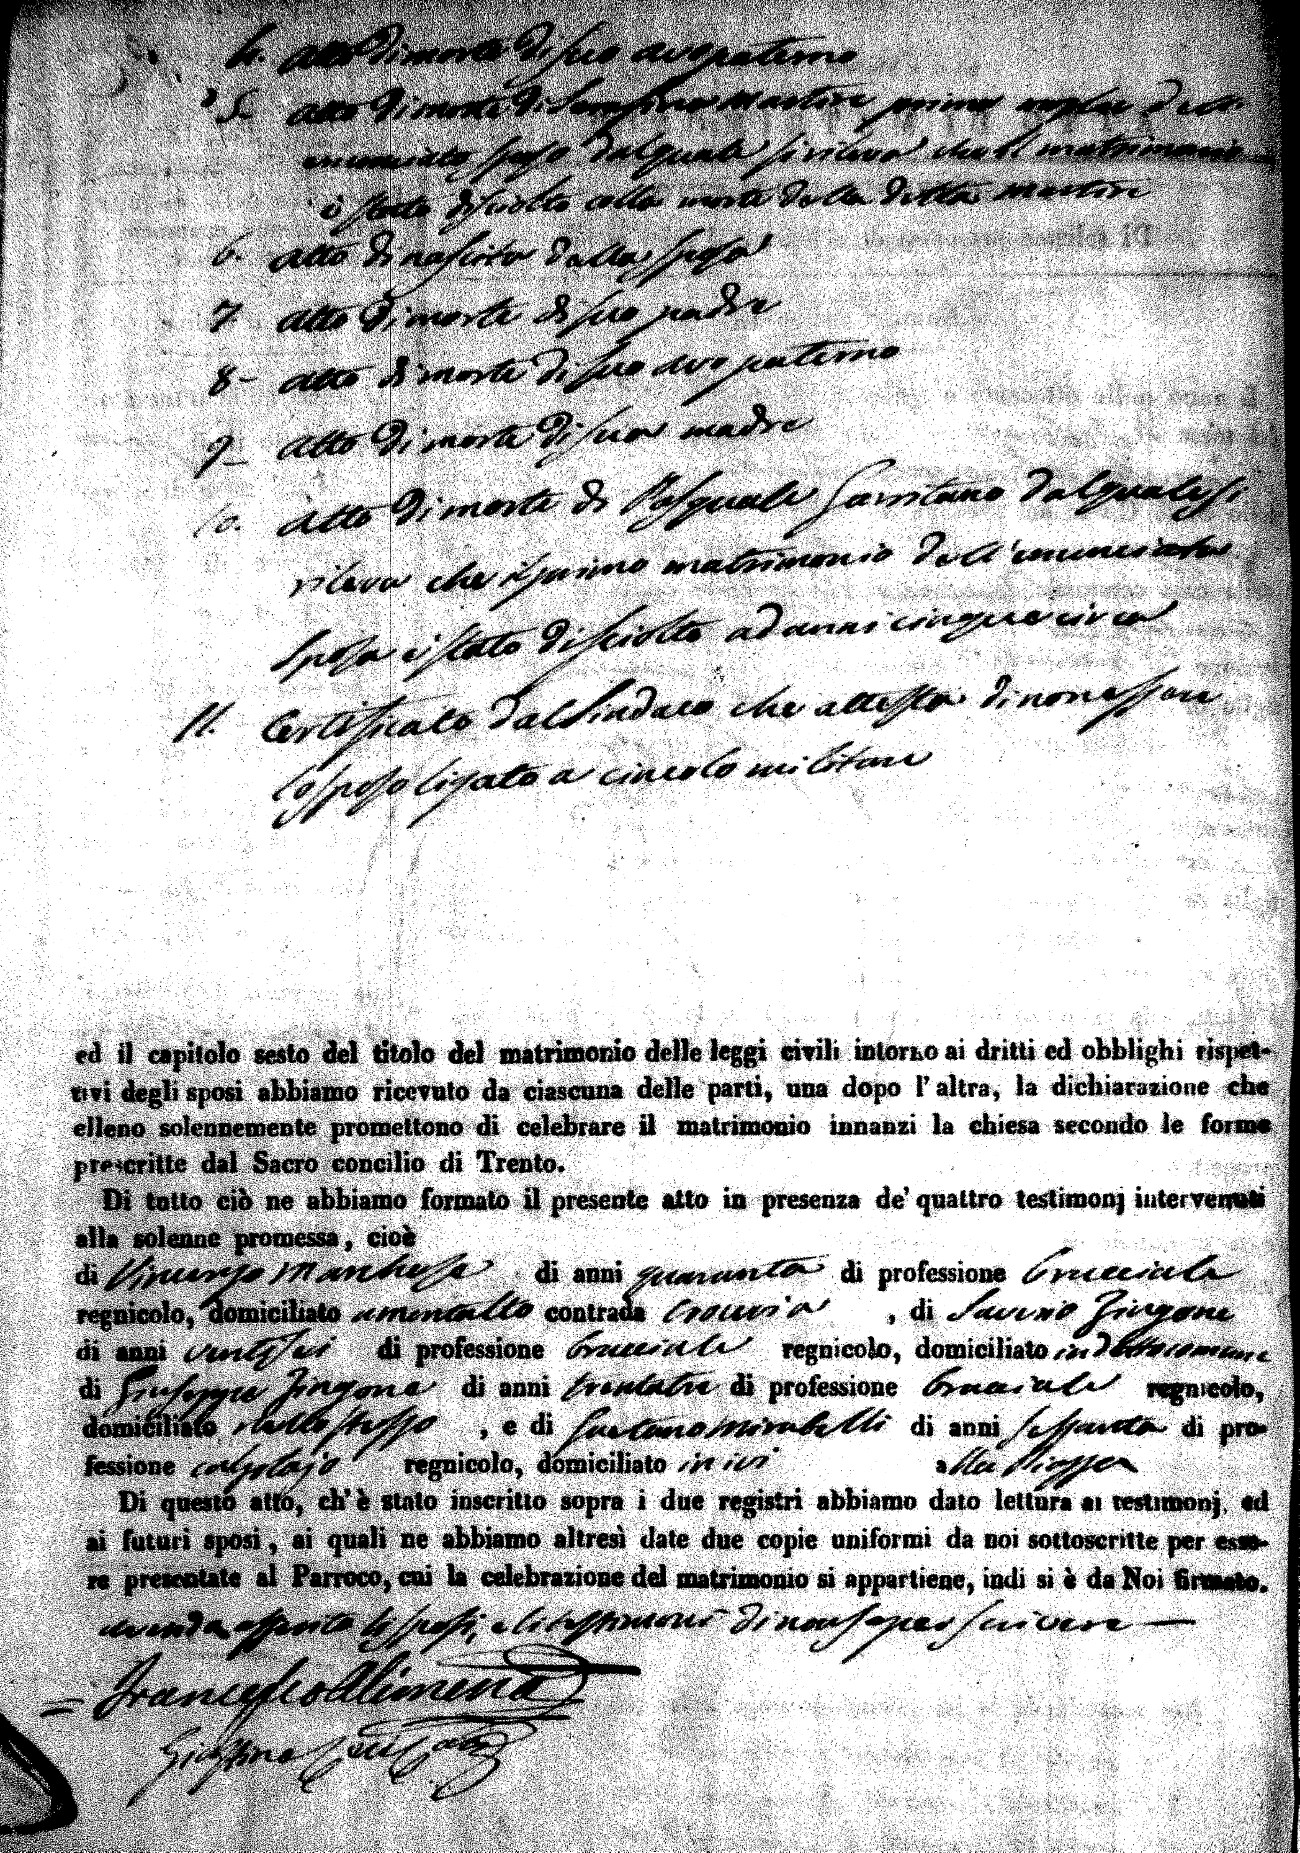 4. atto di morte di suo avo paterno
5. atto di morte di Serafina Martire prima moglie dell'
enunciato sposo dal quale si rileva che il matrimonio
è stato disciolto colla morte della detta Martire
6. atto di nascita della sposa
7. atto di morte di suo padre
8- atto di morte di suo avo paterno
9- atto di morte di sua madre
10. atto di morte di Pasquale dal quale si
rileva che il primo matrimonio dell'enunciata
sposa è stato disciolto ad anni cinque circa
11. Certificato dal Sindaco che attesta di non essere
lo sposo ligato a vincolo militare
ed il capitolo sesto del titolo del matrimonio delle leggi civili intorno ai dritti ed obblighi rispet-
tivi degli sposi abbiamo ricevuto da ciascuna delle parti, una dopo l'altra, la dichiarazione che
elleno solennemente promettono di celebrare il matrimonio innanzi la chiesa secondo le forme
prescritte dal Sacro concilio di Trento.
Di tutto ciò ne abbiamo formato il presente atto in presenza de' quattro testimonj intervenuti
alla solenne promessa, cioè
di Vincenzo Marchese di anni quaranta di professione bracciale
regnicolo, domiciliato contrada , di Saverio Zingone
di anni ventisei di professione bracciale regnicolo, domiciliato in detto comune
di Giuseppe Zingone di anni trentatre di professione bracciale regnicolo,
domiciliato nello stesso , e di Gaetano Mirabelli di anni sessanta di pro-
fessione calzolajo regnicolo, domiciliato in ivi alla Piazza
Di questo atto, ch'è stato inscritto sopra i due registri abbiamo dato lettura ai testimonj, ed
ai futuri sposi, ai quali ne abbiamo altresì date due copie uniformi da noi sottoscritte per esse-
re presentate al Parroco, cui la celebrazione del matrimonio si appartiene, indi si è da Noi firmato.
avendo asserito li sposi, e li testimoni di non saper scrivere —
Francesco Alimena